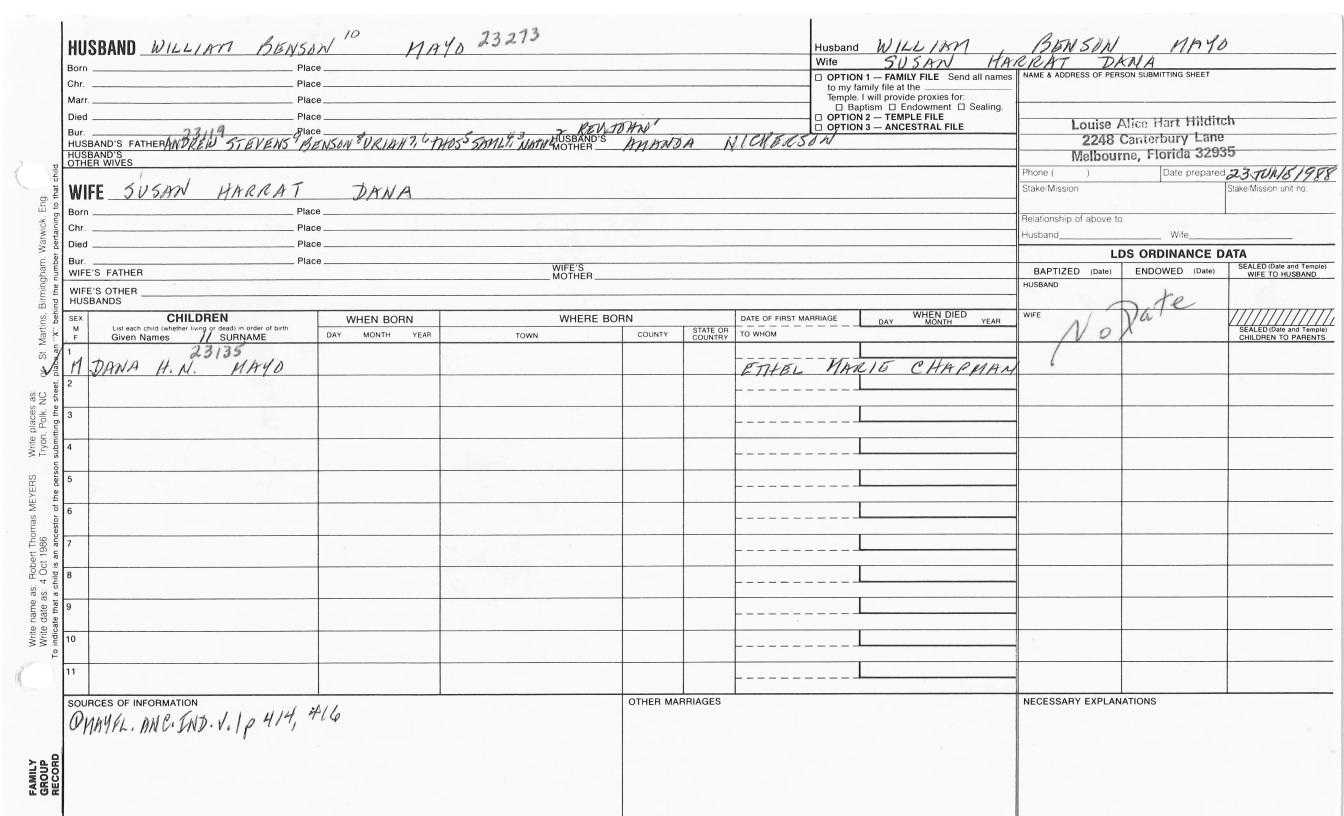 HUSBAND WILLIAM BENSON 10 MAYO 23273
Born Place
Chr. Place
Marr. Place
Died Place
Bur. Place
23119
HUSBAND'S FATHER ANDREW STEVENS 9 BENSON 8 URIAH 7, 6 THOS 5 SAML 4, 3 NATH 2 REV. JOHN 1 HUSBAND'S MOTHER AMANDA NICKERSON
HUSBAND'S OTHER WIVES
WIFE SUSAN HARRAT DANA
Born Place
Chr. Place
Died Place
Bur. Place
WIFE'S FATHER WIFE'S MOTHER
WIFE'S OTHER HUSBANDS
Husband WILLIAM BENSON MAYO
Wife SUSAN HARRAT DANA
☐ OPTION 1 — FAMILY FILE Send all names
to my family file at the
Temple. I will provide proxies for:
☐ Baptism ☐ Endowment ☐ Sealing.
☐ OPTION 2 — TEMPLE FILE
☐ OPTION 3 — ANCESTRAL FILE
NAME & ADDRESS OF PERSON SUBMITTING SHEET
Louise Alice Hart Hilditch
2248 Canterbury Lane
Melbourne, Florida 32935
Phone ( ) Date prepared 23 JUN 1988
Stake/Mission Stake/Mission unit no.
Relationship of above to
Husband Wife
LDS ORDINANCE DATA
BAPTIZED (Date) ENDOWED (Date) SEALED (Date and Temple) WIFE TO HUSBAND
HUSBAND
WIFE
No Date
SEALED (Date and Temple) CHILDREN TO PARENTS
SEX M F
CHILDREN
List each child (whether living or dead) in order of birth
Given Names 11 SURNAME
WHEN BORN
DAY MONTH YEAR
WHERE BORN
TOWN COUNTY STATE OR COUNTRY
DATE OF FIRST MARRIAGE
TO WHOM
WHEN DIED
DAY MONTH YEAR
23135
1 M DANA H.N. MAYO ETHEL MARIE CHAPMAN
2
3
4
5
6
7
8
9
10
11
SOURCES OF INFORMATION
① MAYFL. ANC. IND. V. 1 p 414, 416
OTHER MARRIAGES
NECESSARY EXPLANATIONS
Write name as: Robert Thomas MEYERS Write places as: St. Martins, Birmingham, Warwick, Eng.
Write date as: 4 Oct 1986 Tryon, Polk, NC
To indicate that a child is an ancestor of the person submitting the sheet, place an "X" behind the number pertaining to that child
FAMILY
GROUP
RECORD